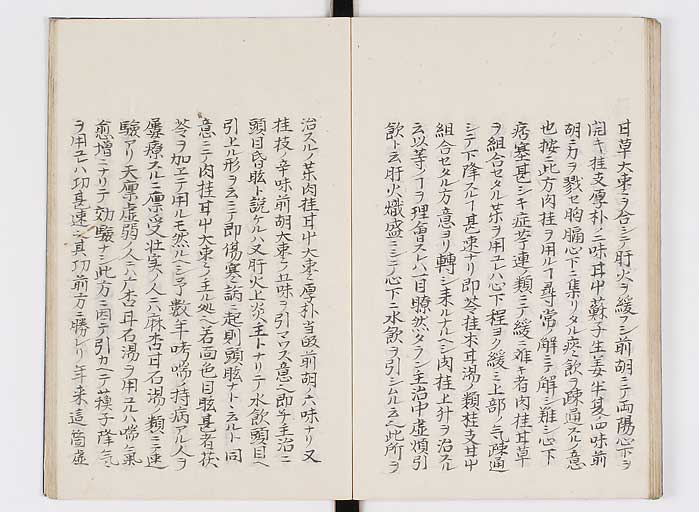 甘草大棗ヲ合シテ肝火ヲ緩フシ前胡ミテ両陽心下ヲ
開キ桂支厚朴ノ二味甘屮蘇子生姜半夏ノ四味前
胡ミ力ヲ戮セ胸膈心下ミ集リタル痰飲ヲ疎通スルノ意
也按ミ此方肉桂ヲ用ルヿ尋常ノ解ミテ解シ難シ心下
痞塞甚シキ症苓連ノ類ミテ緩ミ難キ者肉桂甘草
ヲ組合セタル薬ヲ用ユレハ心下程ヨク緩ミ上部ノ気疎通
シテ下降スルヿ甚速ナリ即苓桂朮甘湯ノ類桂支甘屮
組合セタル方意ヨリ轉シ来ルナルヘシ肉桂上升ヲ治スル
云以等ノヿヲ理會スレハ一目瞭然タラン主治中虚煩引
飲ト云肝火熾盛ミシテ心下ミ水飲ヲ引シムル云ヘ此所ヲ
治スルノ薬肉桂甘屮大棗ミ厚朴当皈前胡ノ六味ナリ又
桂枝ノ辛味前胡大棗ラ五味ヲ引マワス意ヘ即チ主治ニ
頭目昏眩ト説ケルハ又肝火上炎ノ主トナリテ水飲頭目ヘ
引上ル形ヲ云ミテ即傷寒論ミ起則頭眩ナトヽ云ルト同
意ミテ肉桂甘屮大棗ラノ主ル処ヘ若面色目眩甚者茯
苓ヲ加エテ用ルモ然ルヘシ予数年咳喘ノ持病アル人ヲ
屡療スルニ禀受壮実ノ人ニハ麻杏甘石湯ノ類ミテ速
験アリ天禀虚弱ノ人ミハ麻杏甘石湯ヲ用ユルハ喘気
愈増ミナリテ効験ナシ此方ミ因テ引カヘテ蘇子降気
ヲ用エハ功甚速ニ其功前方ミ勝レリ年来這箇虚